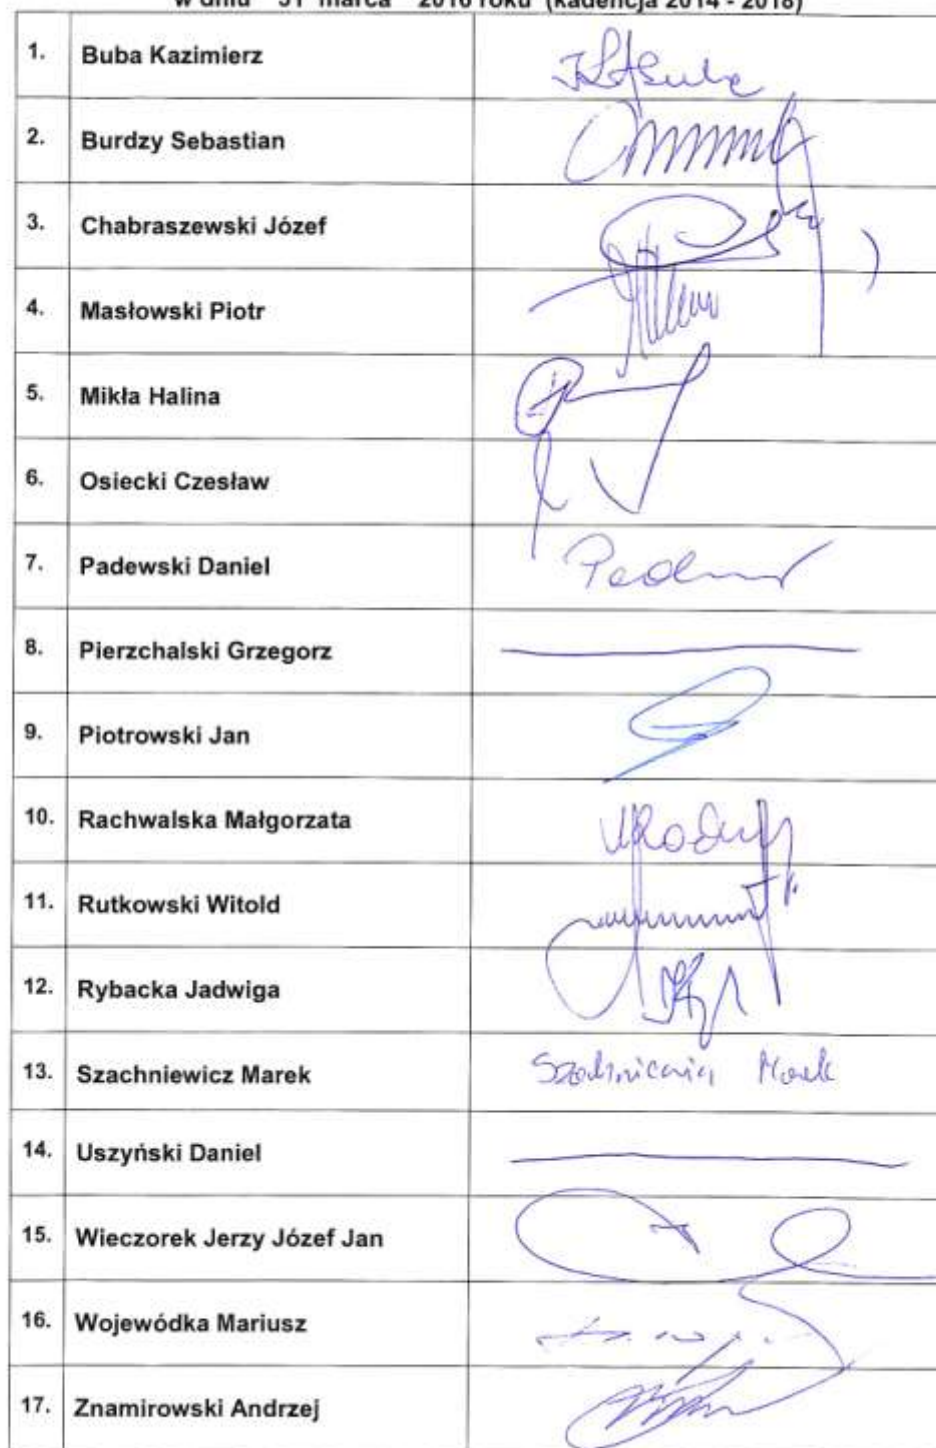 w dniu 31 marca 2016 roku (kadencja 2014 - 2018)
1. Buba Kazimierz
2. Burdzy Sebastian
3. Chabraszewski Józef
4. Masłowski Piotr
5. Mikła Halina
6. Osiecki Czesław
7. Padewski Daniel
8. Pierzchalski Grzegorz
9. Piotrowski Jan
10. Rachwalska Małgorzata
11. Rutkowski Witold
12. Rybacka Jadwiga
13. Szachniewicz Marek
14. Uszyński Daniel
15. Wieczorek Jerzy Józef Jan
16. Wojewódka Mariusz
17. Znamirowski Andrzej